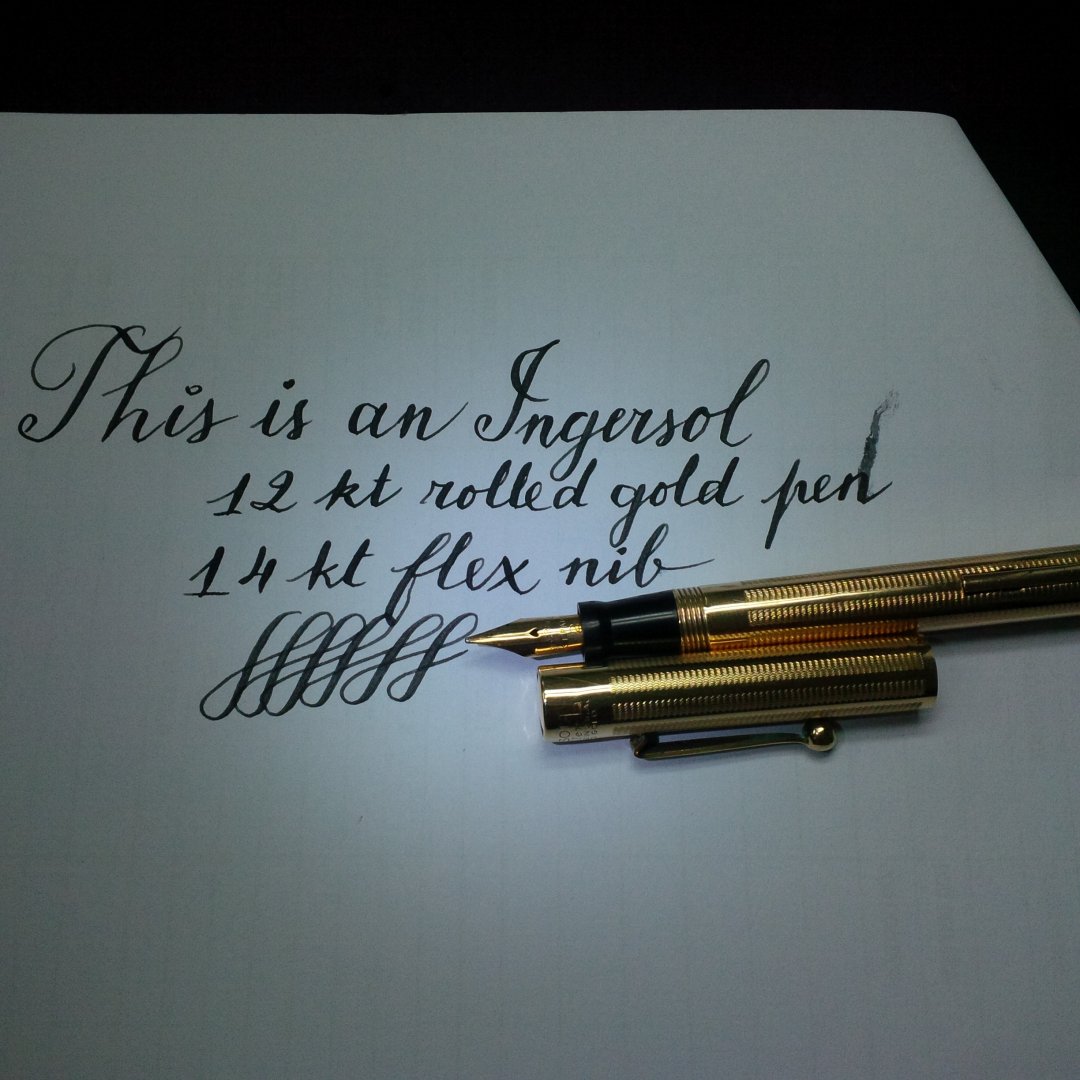 This is an Ingersol
12 kt rolled gold pen
14 kt flex nib